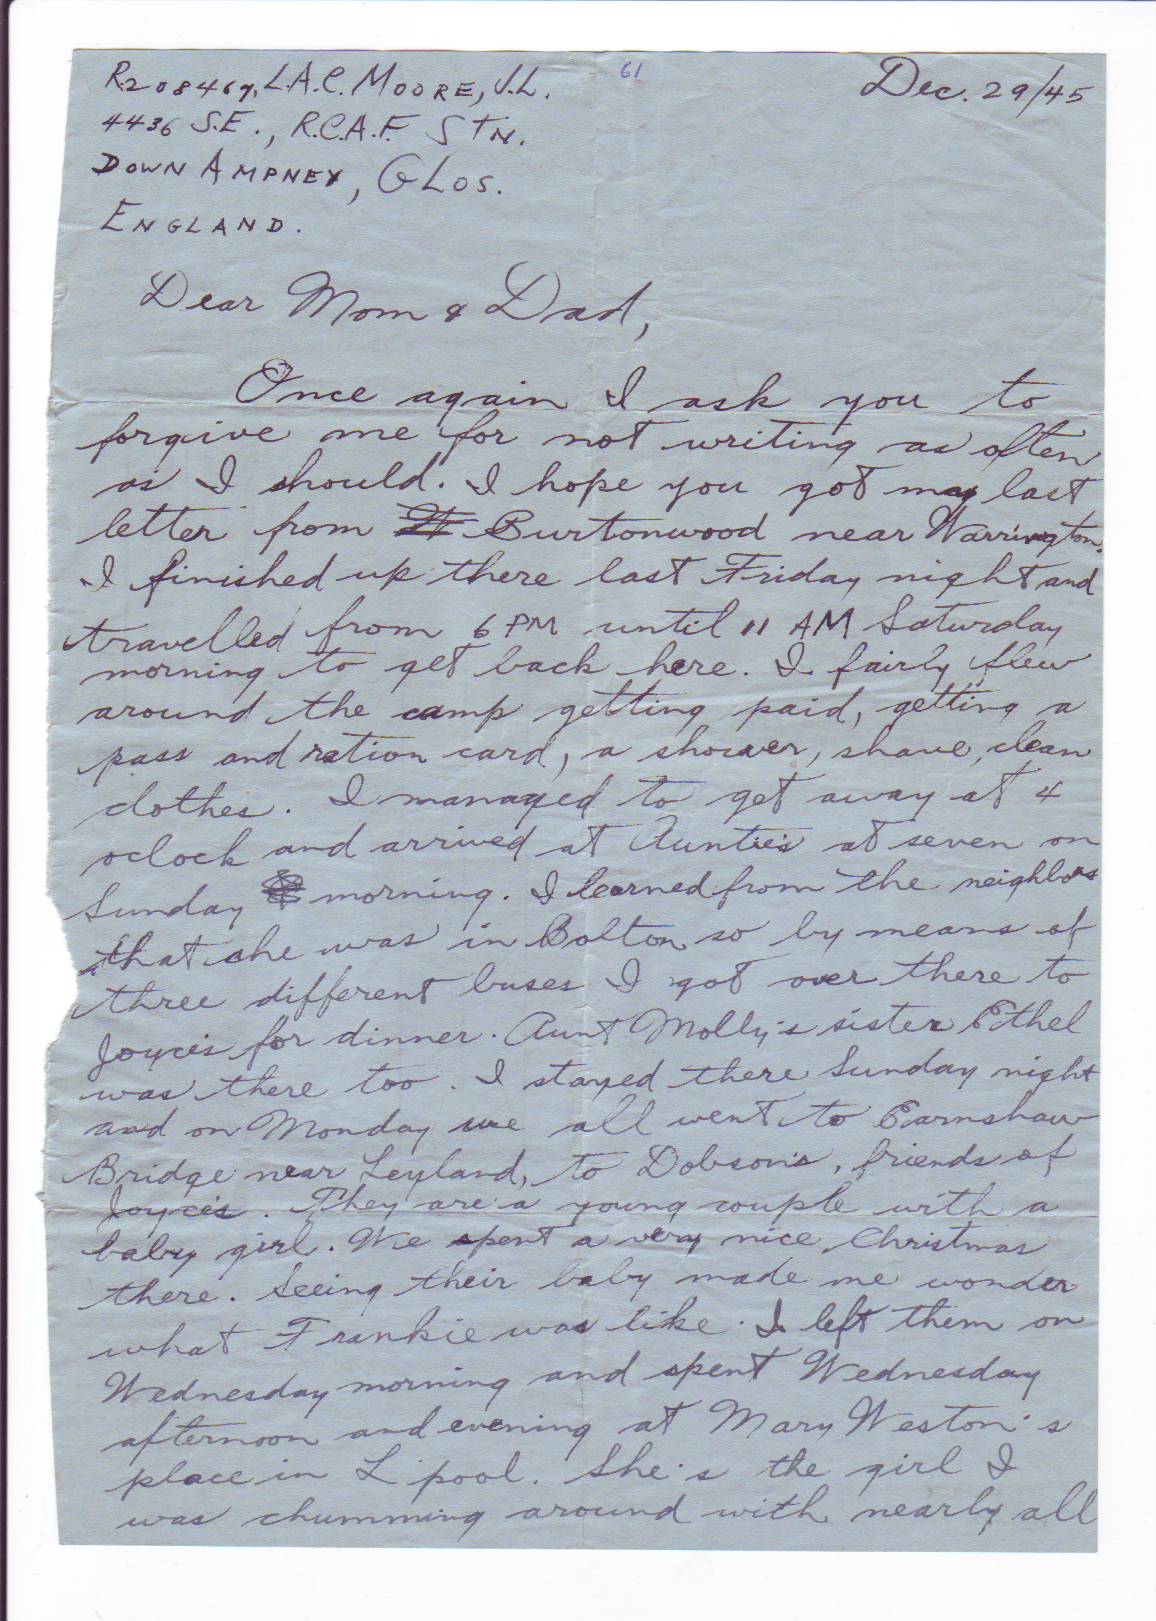 R208467, L.A.C. MOORE, J.L.
61
Dec. 29/45
4436 S.E., R.C.A.F. STN.
DOWN AMPNEY, GLOS.
ENGLAND.
Dear Mom & Dad,
Once again I ask you to
forgive me for not writing as often
as I should. I hope you got my last
letter from Burtonwood near Warrington.
I finished up there last Friday night and
travelled from 6 PM until 11 AM Saturday
morning to get back here. I fairly flew
around the camp getting paid, getting a
pass and ration card, a shower, shave, clean
clothes. I managed to get away at 4
oclock and arrived at Auntie's at seven on
Sunday morning. I learned from the neighbors
that she was in Bolton so by means of
three different buses I got over there to
Joyce's for dinner. Aunt Molly's sister Ethel
was there too. I stayed there Sunday night
and on Monday we all went to Earnshaw
Bridge near Leyland, to Dobson's, friends of
Joyce's. They are a young couple with a
baby girl. We spent a very nice Christmas
there. Seeing their baby made me wonder
what Frankie was like. I left them on
Wednesday morning and spent Wednesday
afternoon and evening at Mary Weston's
place in L'pool. She's the girl I
was chumming around with nearly all